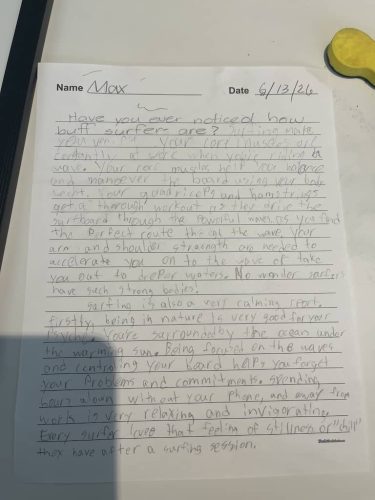 Name Max Date 6/13/26
Have you ever noticed how
buff surfers are? Surfing make
your Your core muscles are
constantly at work when you're riding a
wave. Your core muscles help your balance
and manuever the board using your
weight. Your quadriceps and hamstrings
get a thorough workout as they drive the
surfboard through the powerful waves. as you find
the perfect route through the wave. Your
arm and shoulder straingth are needed to
accelerate you on to the wave or take
you out to deeper waters. No wonder surfers
have such strong bodies!
surfing is also a very calming sport.
firstly, being in nature is very good for your
Psyche. You're surrounded by the ocean under
the warming sun. Being focused on the waves
and controlling your board helps you forget
your problems and commitments. spending
hours alown without your phone, and away from
work is very relaxing and invigorating.
Every surfer loves that feeling of stillness or "chill"
they have after a surfing session.